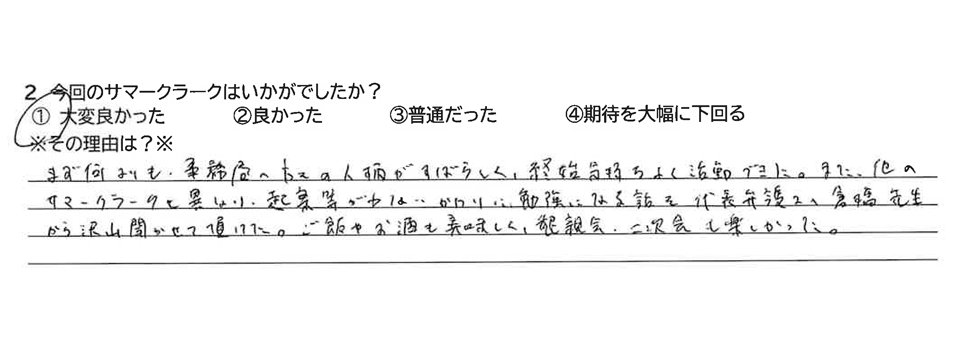 2 今回のサマークラークはいかがでしたか?
① 大変良かった ②良かった ③普通だった ④期待を大幅に下回る
※その理由は?※
まず何よりも、事務所の方々の人柄がすばらしく、終始気持ちよく活動できた。また、他の
サマークラークと異なり、起案等がないかわりに、勉強になる話を代表弁護士の倉橋先生
から沢山聞かせて頂けた。ご飯やお酒も美味しく、懇親会、二次会も楽しかった。